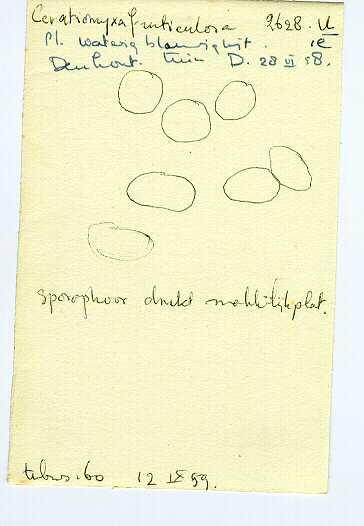 Ceratiomyxa fruticulosa 2628.
Pl. waterig blauwigwit. 
Denhout. tuin D. 28 VI 58.
sporophoor drukt makkelijk plat.
tubus: 60 12 IX 59.